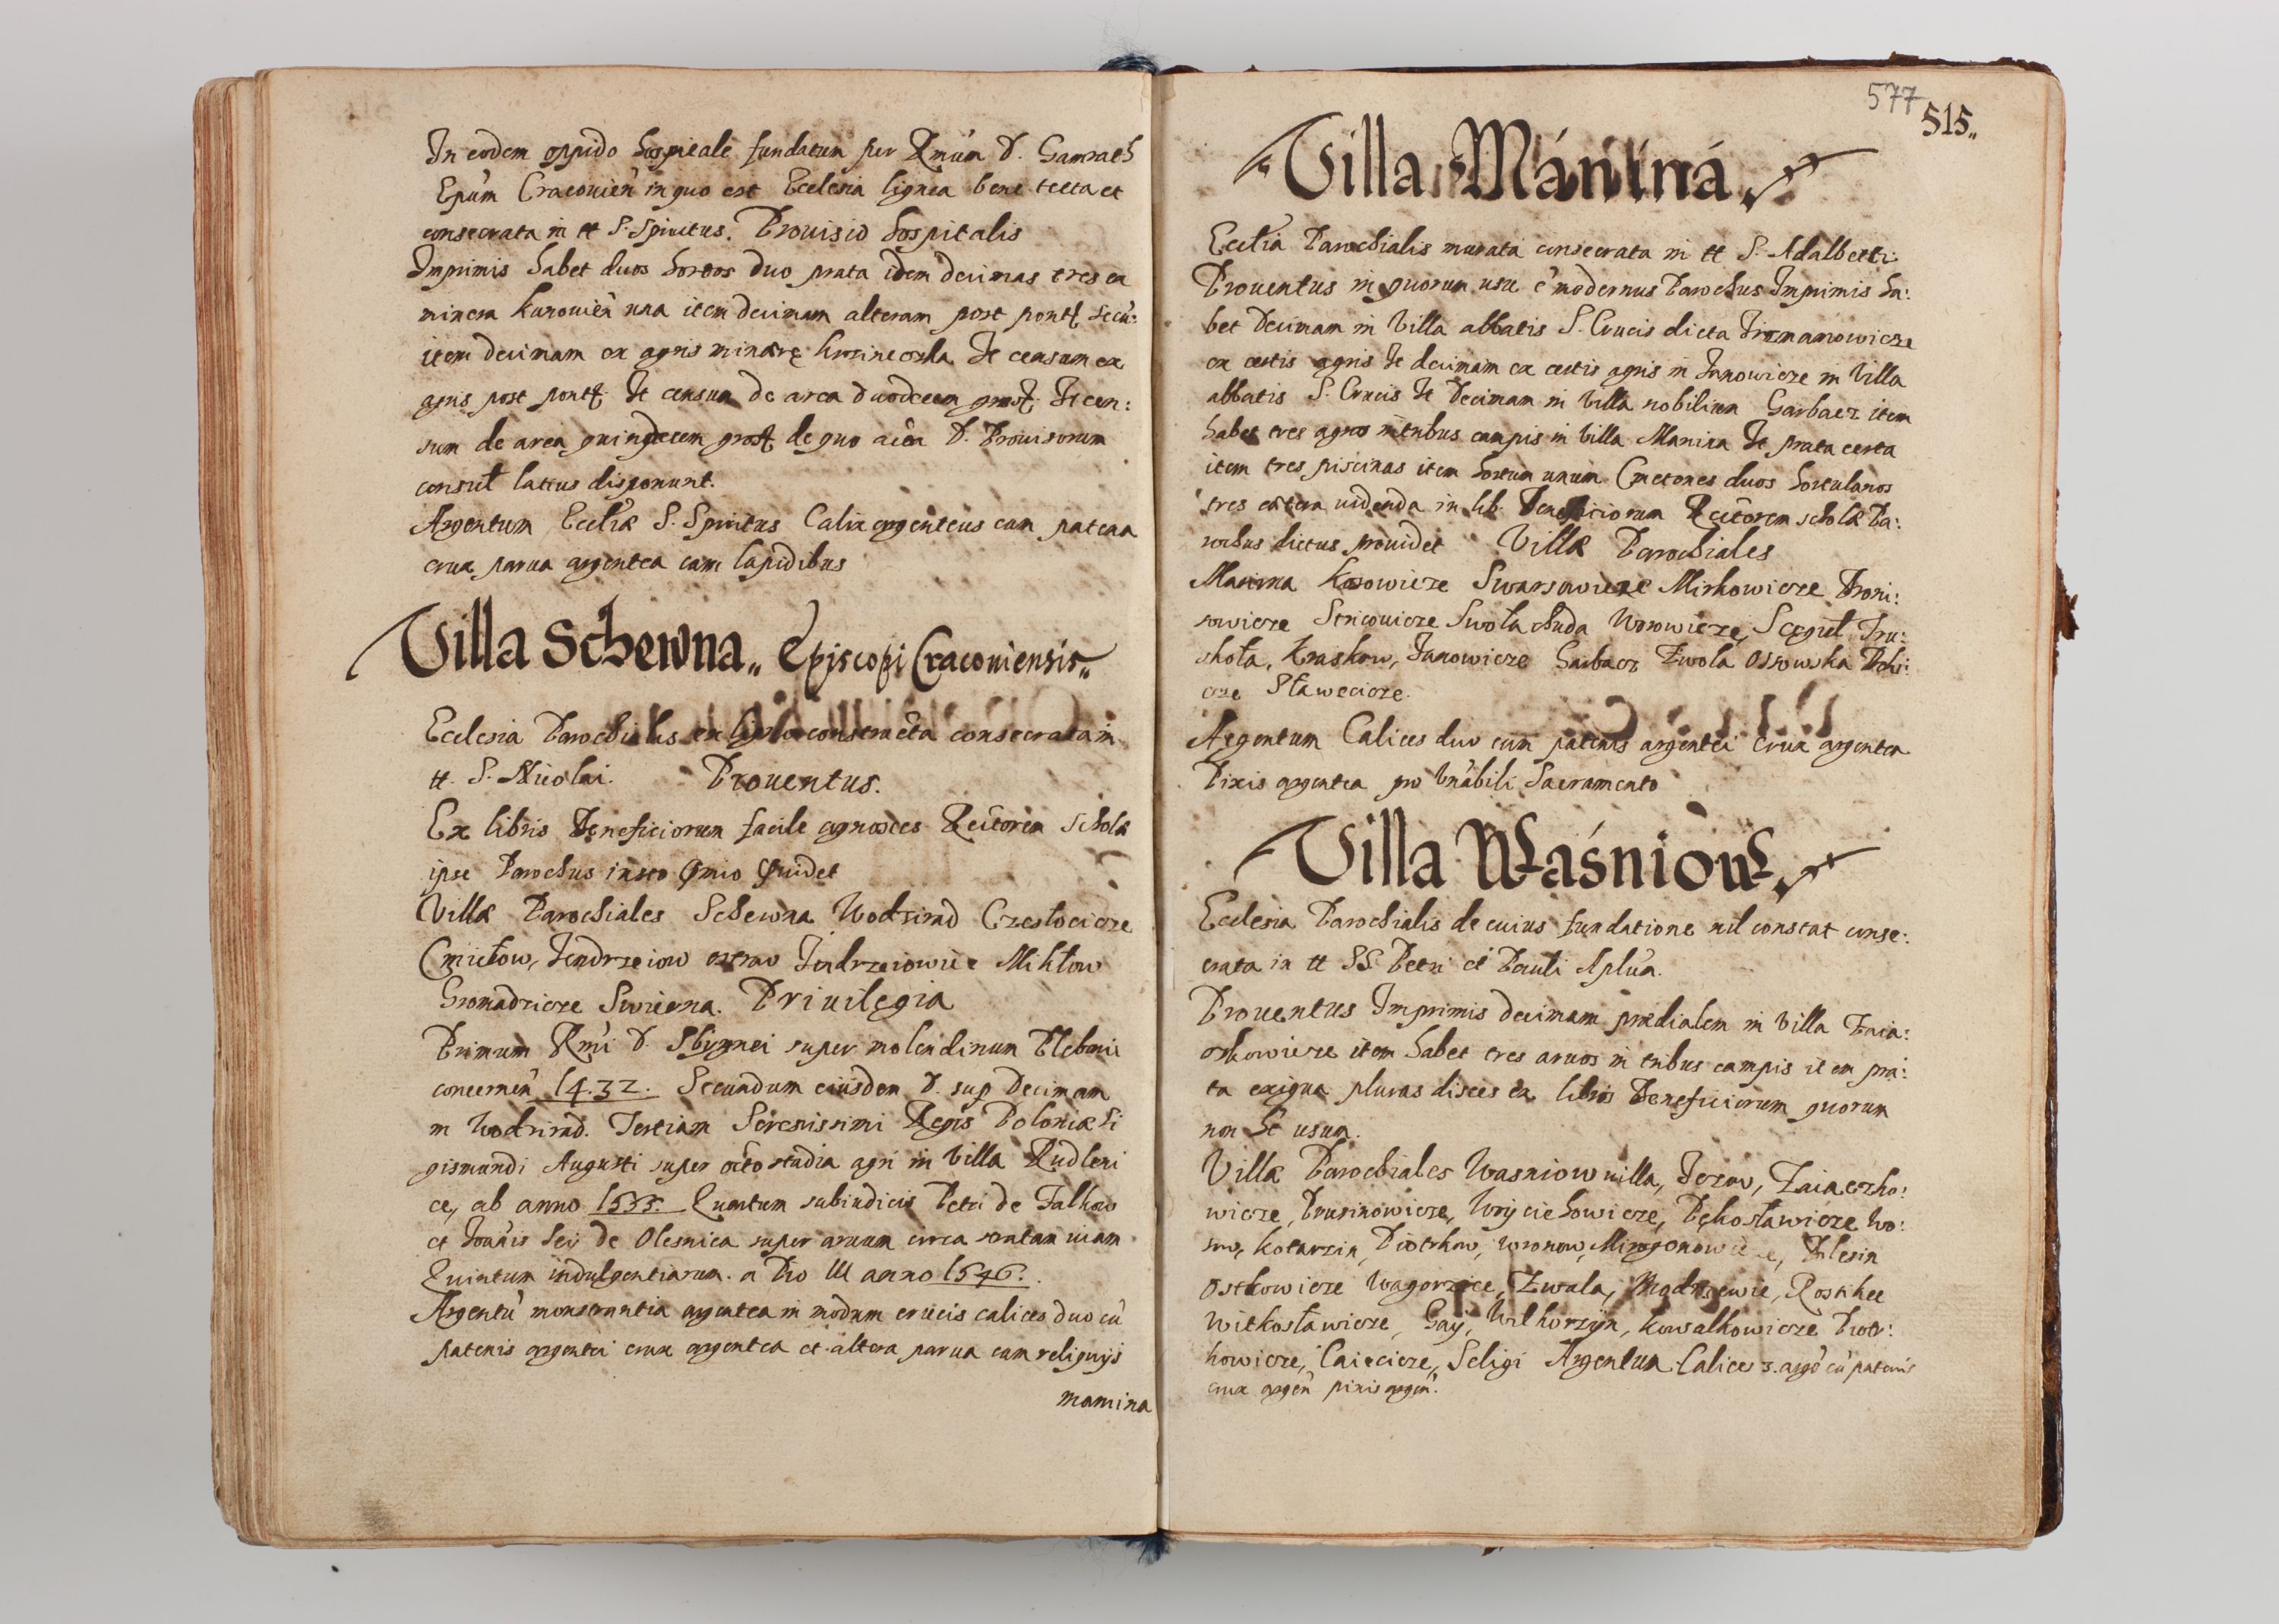 In eodem oppido hospitale fundatum per Rmum D. Gamrath
Epum Cracouien in quo est Ecclesia lignea bene tecta et
consecrata in tt S. Spiritus. Prouisio hospitalis
Inprimis habet duos hortos duo prata idem decimas tres ex
minera kunowien una item decimam alteram post pont
item decimam ex agris It censum ex
agris post pont It censum de area duodecem gross It cen:
sum de area quindecem gross de quo D. Prouisorum
consul latius disponunt.
Argentum Ecclia S. Spiritus Calix argenteus cum patena
crux parua argentea cum lapidibus
Villa Schewna„ Episcopi Cracouiensis„
Ecclesia Parochialis ex ligno constructa consecrata in
tt. S. Nicolai. Prouentus.
Ex libris Beneficiorum facile agnosces Rectorem schola
ipse Parochus iusto
Villa Parochiales Schewna Wodzirad Czestocicze
Cmielow, Jendrzeiow ostrow Jendrzeiowice Mikłow
Gromadzicze Swirna. Priuilegia
Primum Rmi D. Sbignei super molendinum Plebani
concernen 1432. Secundum eiusdem D. sup Decimam
in Wodzirad. Tertiam Serenissimi Regis Poloniæ Si
gismundi Augusti super octo stadia agri in Villa Rudleni
ce, ab anno 1555. Quartum subiudicis Petri de Falkow
et de Olesnica super aruum circa stratam uiam
Quintum indulgentiarum a Pio III anno 1546.
Argentu monstrantia argentea in modum crucis calices duo cu
patenis argentei crux argentea et altera parua cum reliquijs
mamina
577 515„
Villa Mánina
Ecclia Parochialis murata consecrata in tt S. Adalberti.
Prouentus in quorum usu e modernus Parochus Inprimis ha:
bet Decimam in Villa abbatis S. Crucis dicta
ex certis agris It decimam ex certis agris in Janowicze in Villa
abbatis S. Crucis It Decimam in Villa nobilium Garbacz item
habet tres agros in tribus campis in Villa Manina It prata certa
item tres piscinas item hortum unum Cmetones duos hortulanos
tres cætera uidenda in lib. Beneficiorum Rectorem schola Pa:
rochus dictus prouidet Villæ Parochiales
Manina Kosowicze Swarsowicze Mirkowicze Broni:
sowicze Stricouicze Swola chuda Worowicze, Szegul Tru:
skola, Kraskow, Janowicze Garbacz Zwola Ossowska
cze Stawecicze.
Argentum Calices duo cum patenis argentei crux argentea
Pixis argentea pro Vnabili Sacramento
Villa Waśniow
Ecclesia Parochialis de cuius fundatione nil constat conse:
crata in tt SS. Petri et Pauli Aplu.
Prouentus Inprimis decimam prædialem in Villa Zaia:
czkowicze item habet tres aruos in tribus campis item pra:
ta exigua pluras disces ex libris Beneficiorum quorum
non st usum.
Villæ Parochiales Wasniow uilla, Jezow, Zaiaczko:
wicze, Prusinowicze, Woijciechowicze, Pękosławicze Wo:
Kotarzin, Piotrkow, Wronow, Milesin
Ostkowicze Wagorzice, Zwala, Modrzewie, Roszkee
Witkosławicze, Gaij, Wilkorzijn, Kowalkowicze Piotr:
kowicze, Caiecicze, Seligi Argentum Calices 3. arge cu patenis
crux argen pixis argen.